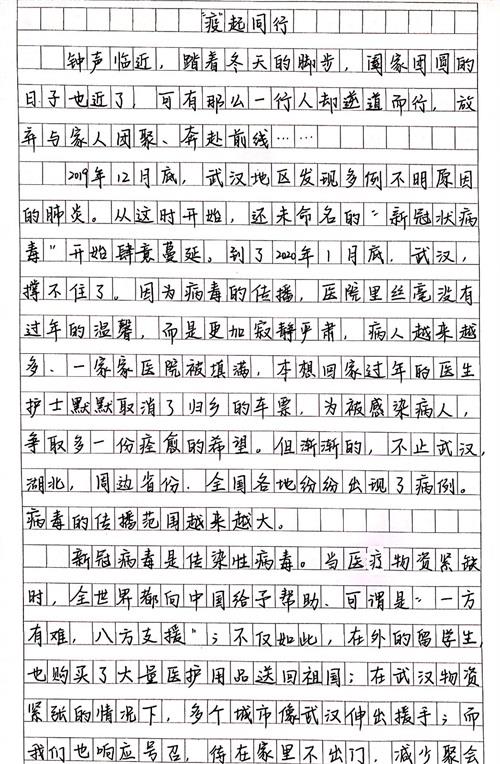 “疫”起同行
钟声临近，踏着冬天的脚步，阖家团圆的
日子也近了，可有那么一行人却逆道而行，放
弃与家人团聚、奔赴前线……
2019年12月底，武汉地区发现多例不明原因
的肺炎。从这时开始，还未命名的“新冠状病
毒”开始肆意蔓延。到了2020年1月底，武汉，
撑不住了。因为病毒的传播，医院里丝毫没有
过年的温馨，而是更加寂静严肃，病人越来越
多、一家家医院被填满，本想回家过年的医生
护士默默取消了归乡的车票，为被感染病人，
争取多一份痊愈的希望。但渐渐的，不止武汉，
湖北，周边省份、全国各地纷纷出现了病例。
病毒的传播范围越来越大。
新冠病毒是传染性病毒。当医疗物资紧缺
时，全世界都向中国给予帮助、可谓是“一方
有难，八方支援”；不仅如此，在外的留学生
也购买了大量医护用品送回祖国；在武汉物资
紧张的情况下，多个城市像武汉伸出援手；而
我们也响应号召，待在家里不出门，减少聚会